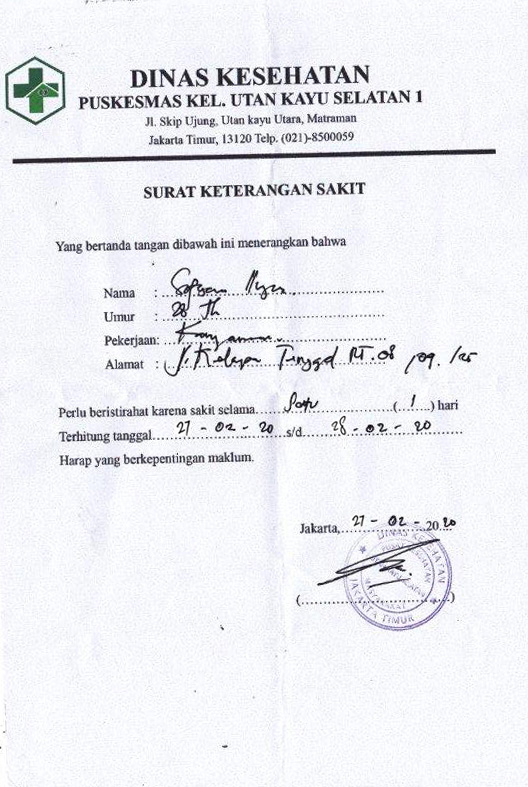 DINAS KESEHATAN
PUSKESMAS KEL. UTAN KAYU SELATAN 1
Jl. Skip Ujung, Utan kayu Utara, Matraman
Jakarta Timur, 13120 Telp. (021)-8500059
SURAT KETERANGAN SAKIT
Yang bertanda tangan dibawah ini menerangkan bahwa
Nama :
Umur : 28 Th
Pekerjaan: Karyawan
Alamat : Jl. Kelapa Tinggal RT.08 /09. /25
Perlu beristirahat karena sakit selama Satu (1) hari
Terhitung tanggal 27 - 02 - 20 s/d 28 - 02 - 20
Harap yang berkepentingan maklum.
Jakarta, 27 - 02 - 2020
DINAS KESEHATAN
JAKARTA TIMUR
(..............................)